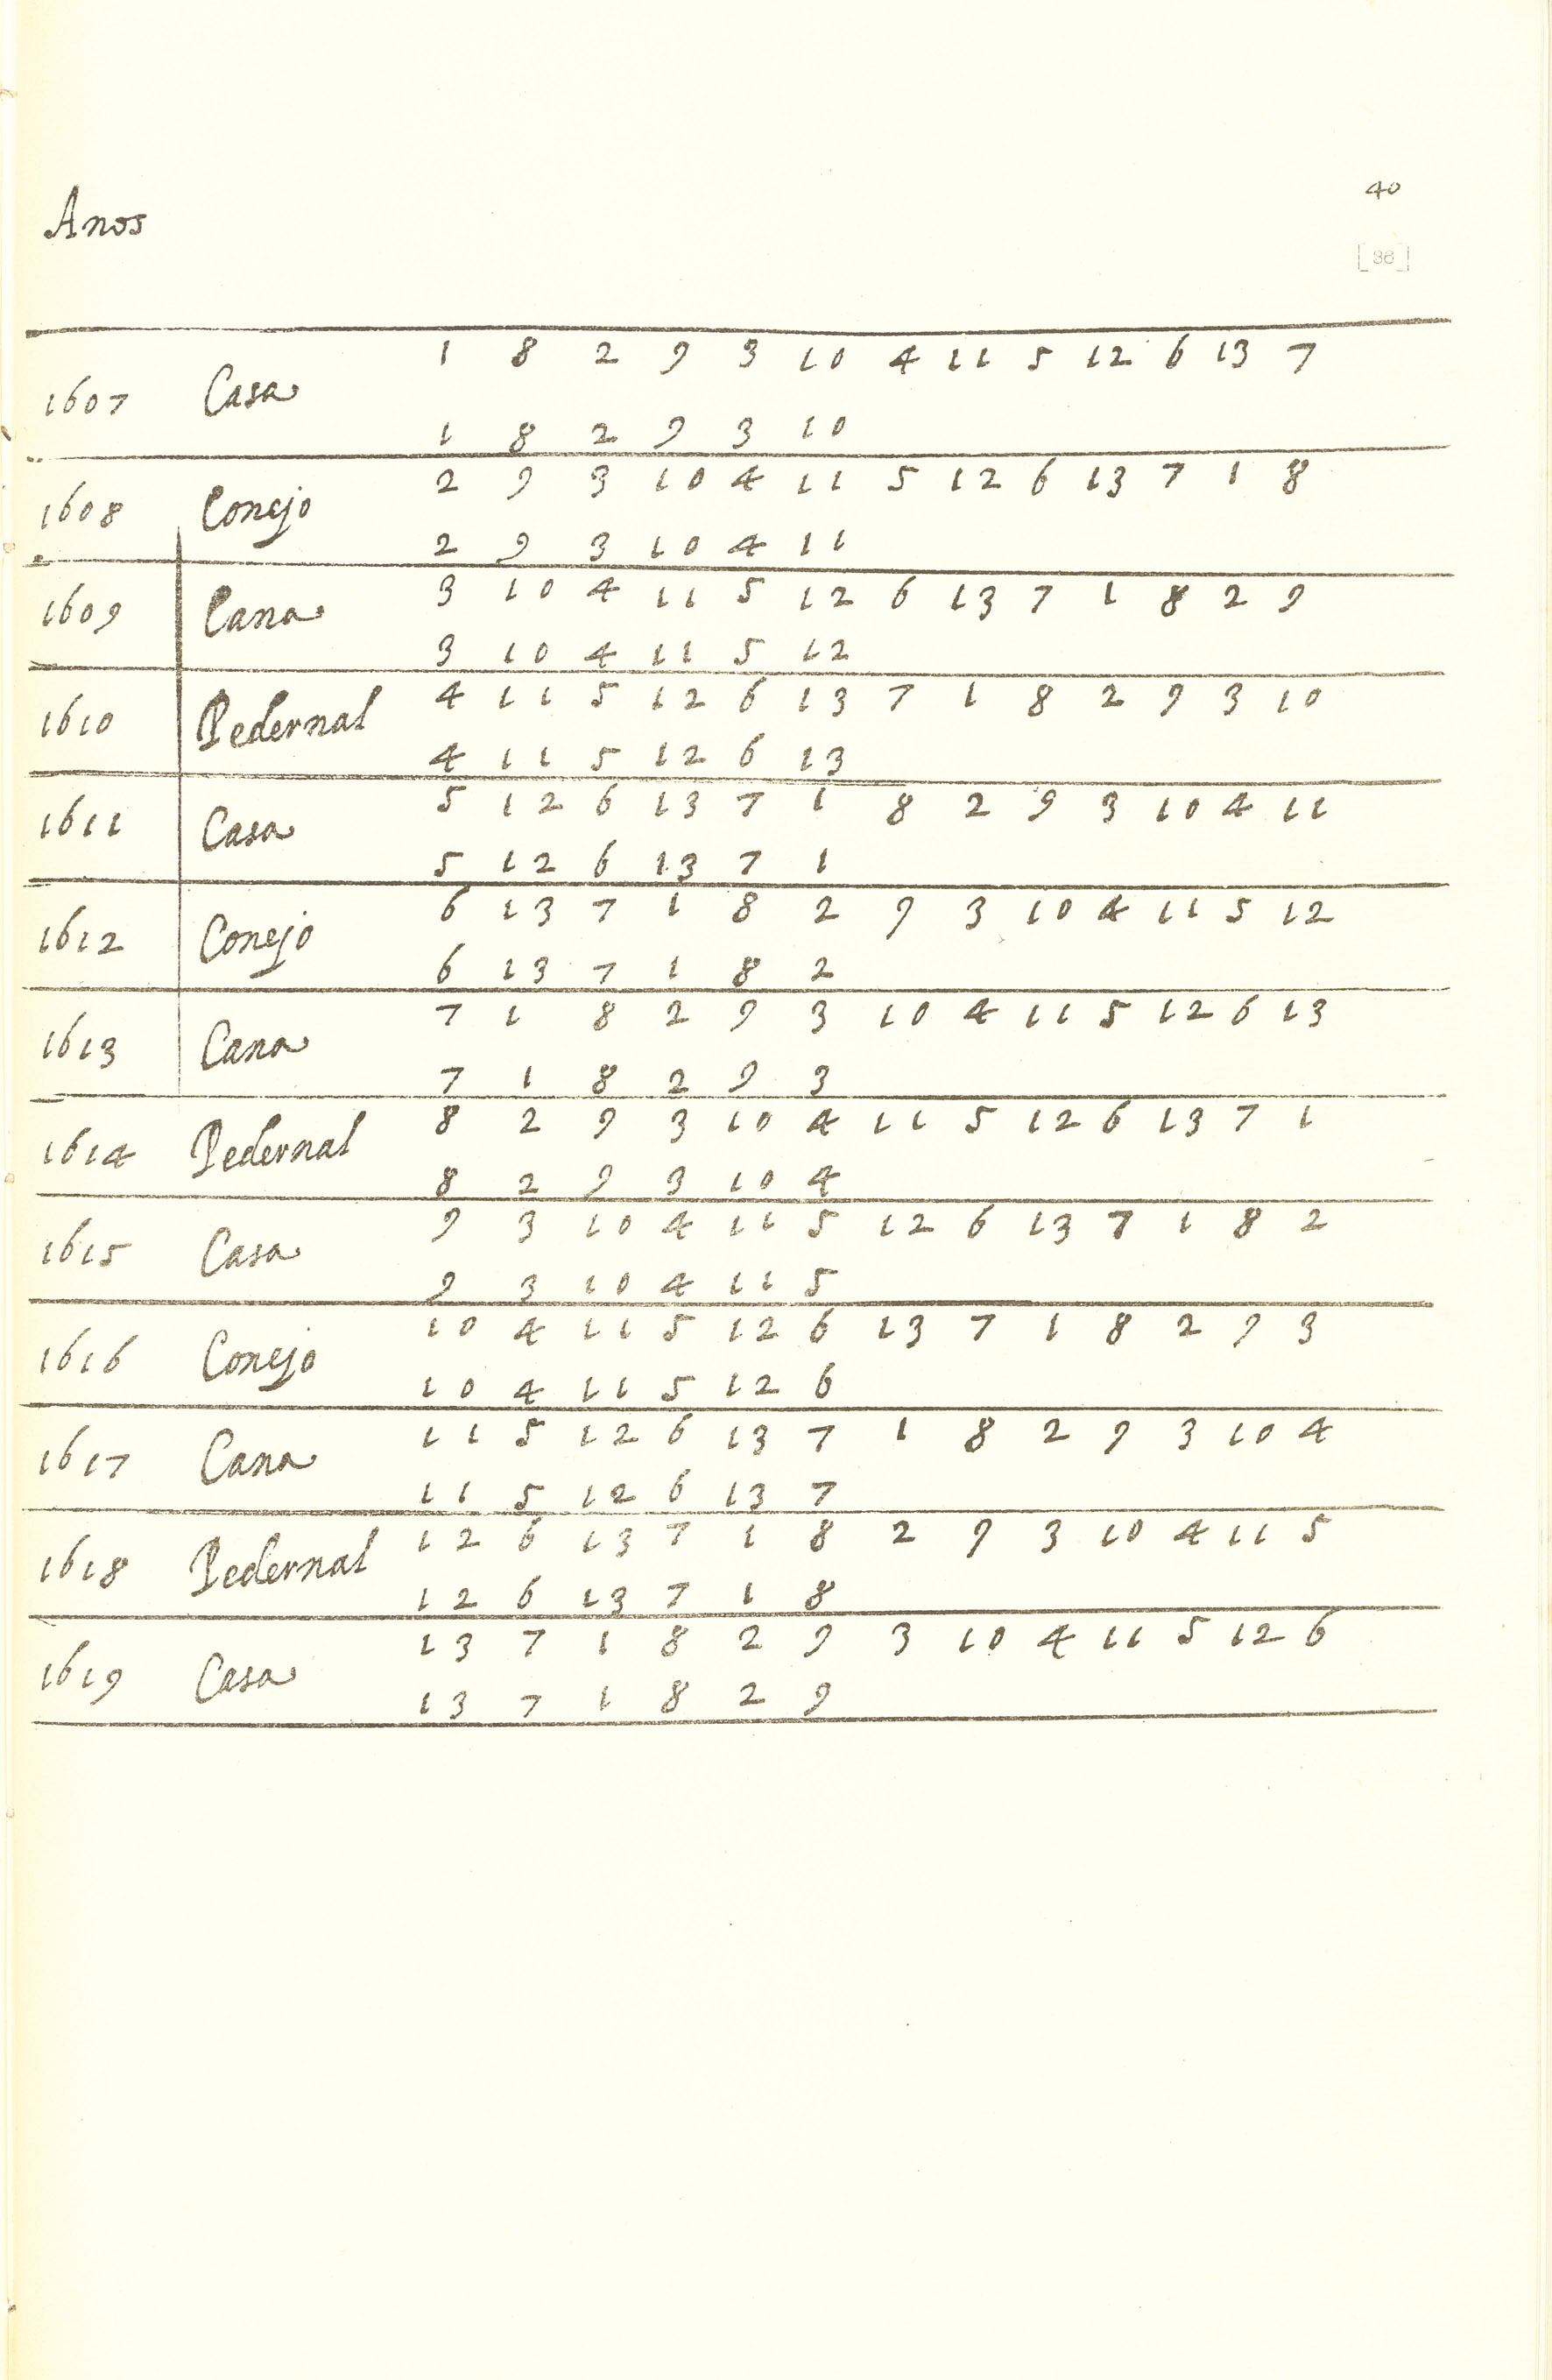 40
Anos
[36]
1 8 2 9 3 10 4 11 5 12 6 13 7
1607 Casa
1 8 2 9 3 10
2 9 3 10 4 11 5 12 6 13 7 1 8
1608 Conejo
2 9 3 10 4 11
3 10 4 11 5 12 6 13 7 1 8 2 9
1609 Cana
3 10 4 11 5 12
4 11 5 12 6 13 7 1 8 2 9 3 10
1610 Pedernal
4 11 5 12 6 13
5 12 6 13 7 1 8 2 9 3 10 4 11
1611 Casa
5 12 6 13 7 1
6 13 7 1 8 2 9 3 10 4 11 5 12
1612 Conejo
6 13 7 1 8 2
7 1 8 2 9 3 10 4 11 5 12 6 13
1613 Cana
7 1 8 2 9 3
8 2 9 3 10 4 11 5 12 6 13 7 1
1614 Pedernal
8 2 9 3 10 4
9 3 10 4 11 5 12 6 13 7 1 8 2
1615 Casa
9 3 10 4 11 5
10 4 11 5 12 6 13 7 1 8 2 9 3
1616 Conejo
10 4 11 5 12 6
11 5 12 6 13 7 1 8 2 9 3 10 4
1617 Cana
11 5 12 6 13 7
12 6 13 7 1 8 2 9 3 10 4 11 5
1618 Pedernal
12 6 13 7 1 8
13 7 1 8 2 9 3 10 4 11 5 12 6
1619 Casa
13 7 1 8 2 9